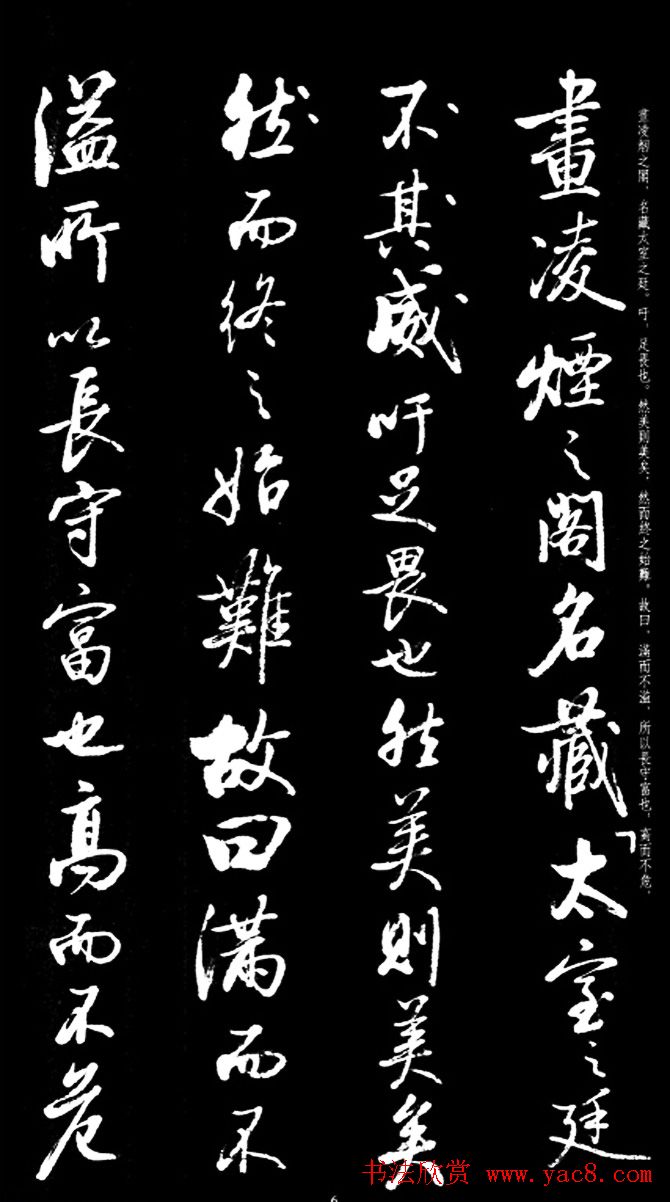 畫凌烟之閣、名藏太室之廷。吁、足畏也。然美則美矣、然而終之始難。故曰、滿而不溢、所以長守富也。高而不危、
畫凌煙之閣名藏太室之廷
不其威吁足畏也然美則美矣
然而終之始難故曰滿而不
溢所以長守富也高而不危
书法欣赏 www.yac8.com
6